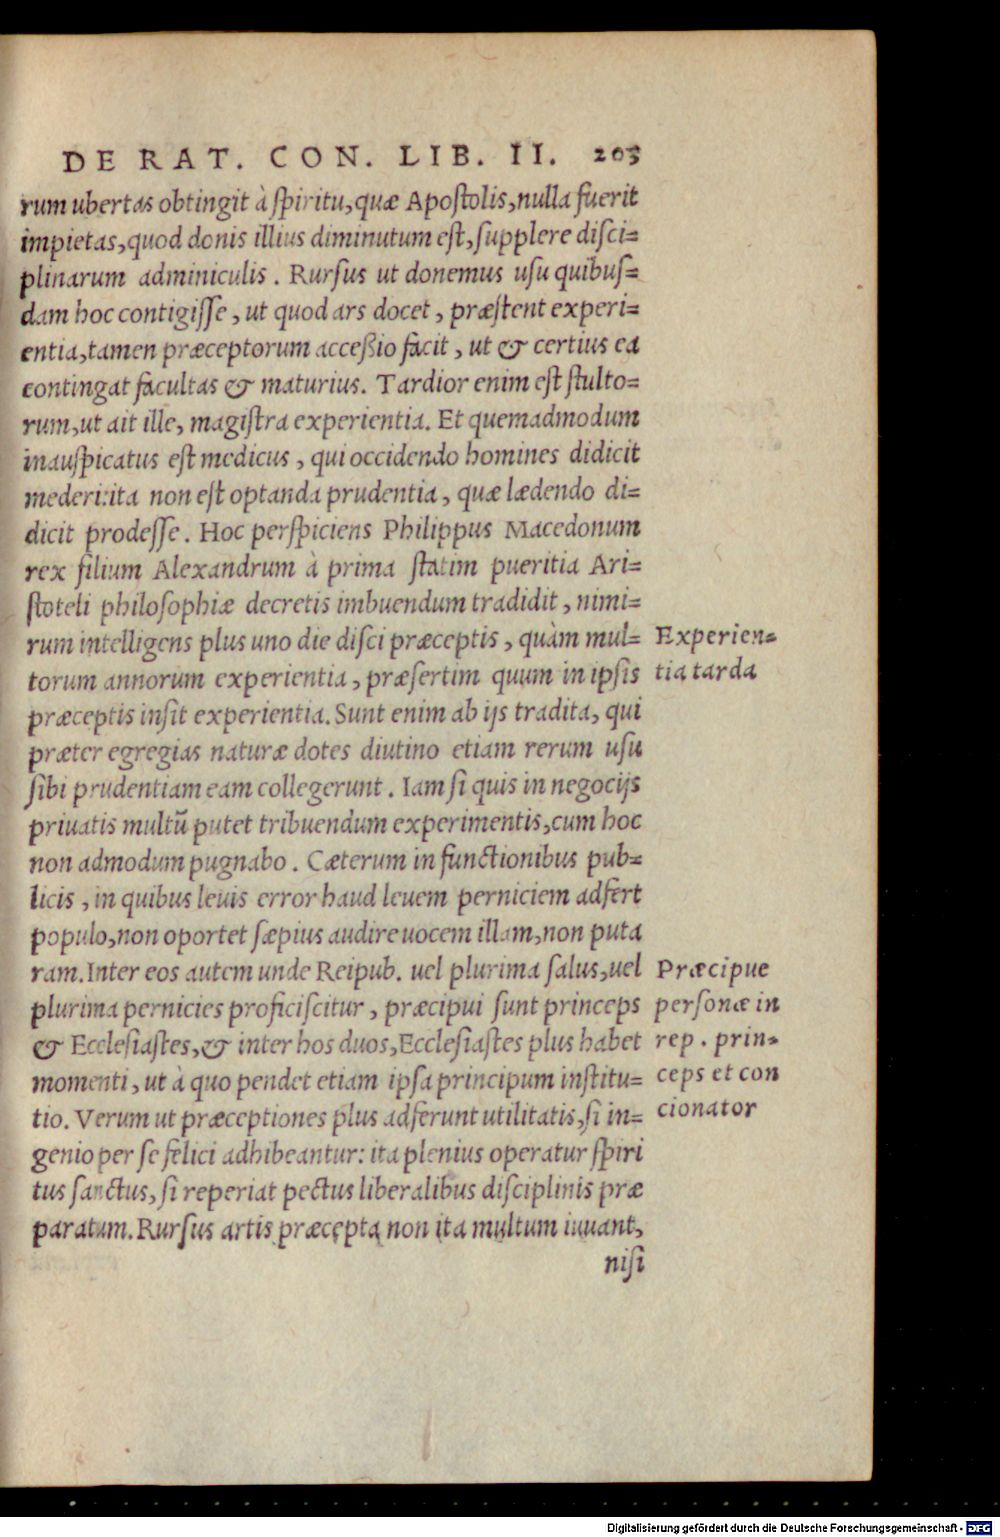 DE RAT. CON. LIB. II. 205
rum ubertas obtingit à ſpiritu,quæ Apoſtolis,nulla fuerit
impietas,quod donis illius diminutum eſt,ſupplere diſci=
plinarum adminiculis. Rurſus ut donemus uſu quibuſ=
dam hoc contigiſſe, ut quod ars docet, præſtent experi=
entia,tamen præceptorum acceßio facit, ut & certius ea
contingat facultas & maturius. Tardior enim eſt ſtulto=
rum,ut ait ille, magiſtra experientia. Et quemadmodum
inauſpicatus eſt medicus, qui occidendo homines didicit
mederi:ita non eſt optanda prudentia, quæ lædendo di=
dicit prodeſſe. Hoc perſpiciens Philippus Macedonum
rex filium Alexandrum à prima ſtatim pueritia Ari=
ſtoteli philoſophiæ decretis imbuendum tradidit, nimi=
rum intelligens plus uno die diſci præceptis, quàm mul=
torum annorum experientia, præſertim quum in ipſis
præceptis inſit experientia. Sunt enim ab ijs tradita, qui
præter egregias naturæ dotes diutino etiam rerum uſu
ſibi prudentiam eam collegerunt. Iam ſi quis in negocijs
priuatis multũ putet tribuendum experimentis,cum hoc
non admodum pugnabo. Cæterum in functionibus pub=
licis, in quibus leuis error haud leuem perniciem adfert
populo,non oportet ſæpius audire uocem illam,non puta
ram. Inter eos autem unde Reipub. uel plurima ſalus,uel
plurima pernicies proficiſcitur, præcipui ſunt princeps
& Eccleſiaſtes,& inter hos duos,Eccleſiaſtes plus habet
momenti, ut à quo pendet etiam ipſa principum inſtitu=
tio. Verum ut præceptiones plus adferunt utilitatis,ſi in=
genio per ſe felici adhibeantur: ita plenius operatur ſpiri
tus ſanctus, ſi reperiat pectus liberalibus diſciplinis præ
paratum. Rurſus artis præcepta non ita multum iuuant,
niſi
Experien=
tia tarda
Præcipue
perſonæ in
rep. prin=
ceps et con
cionator
Digitalisierung gefördert durch die Deutsche Forschungsgemeinschaft - DFG